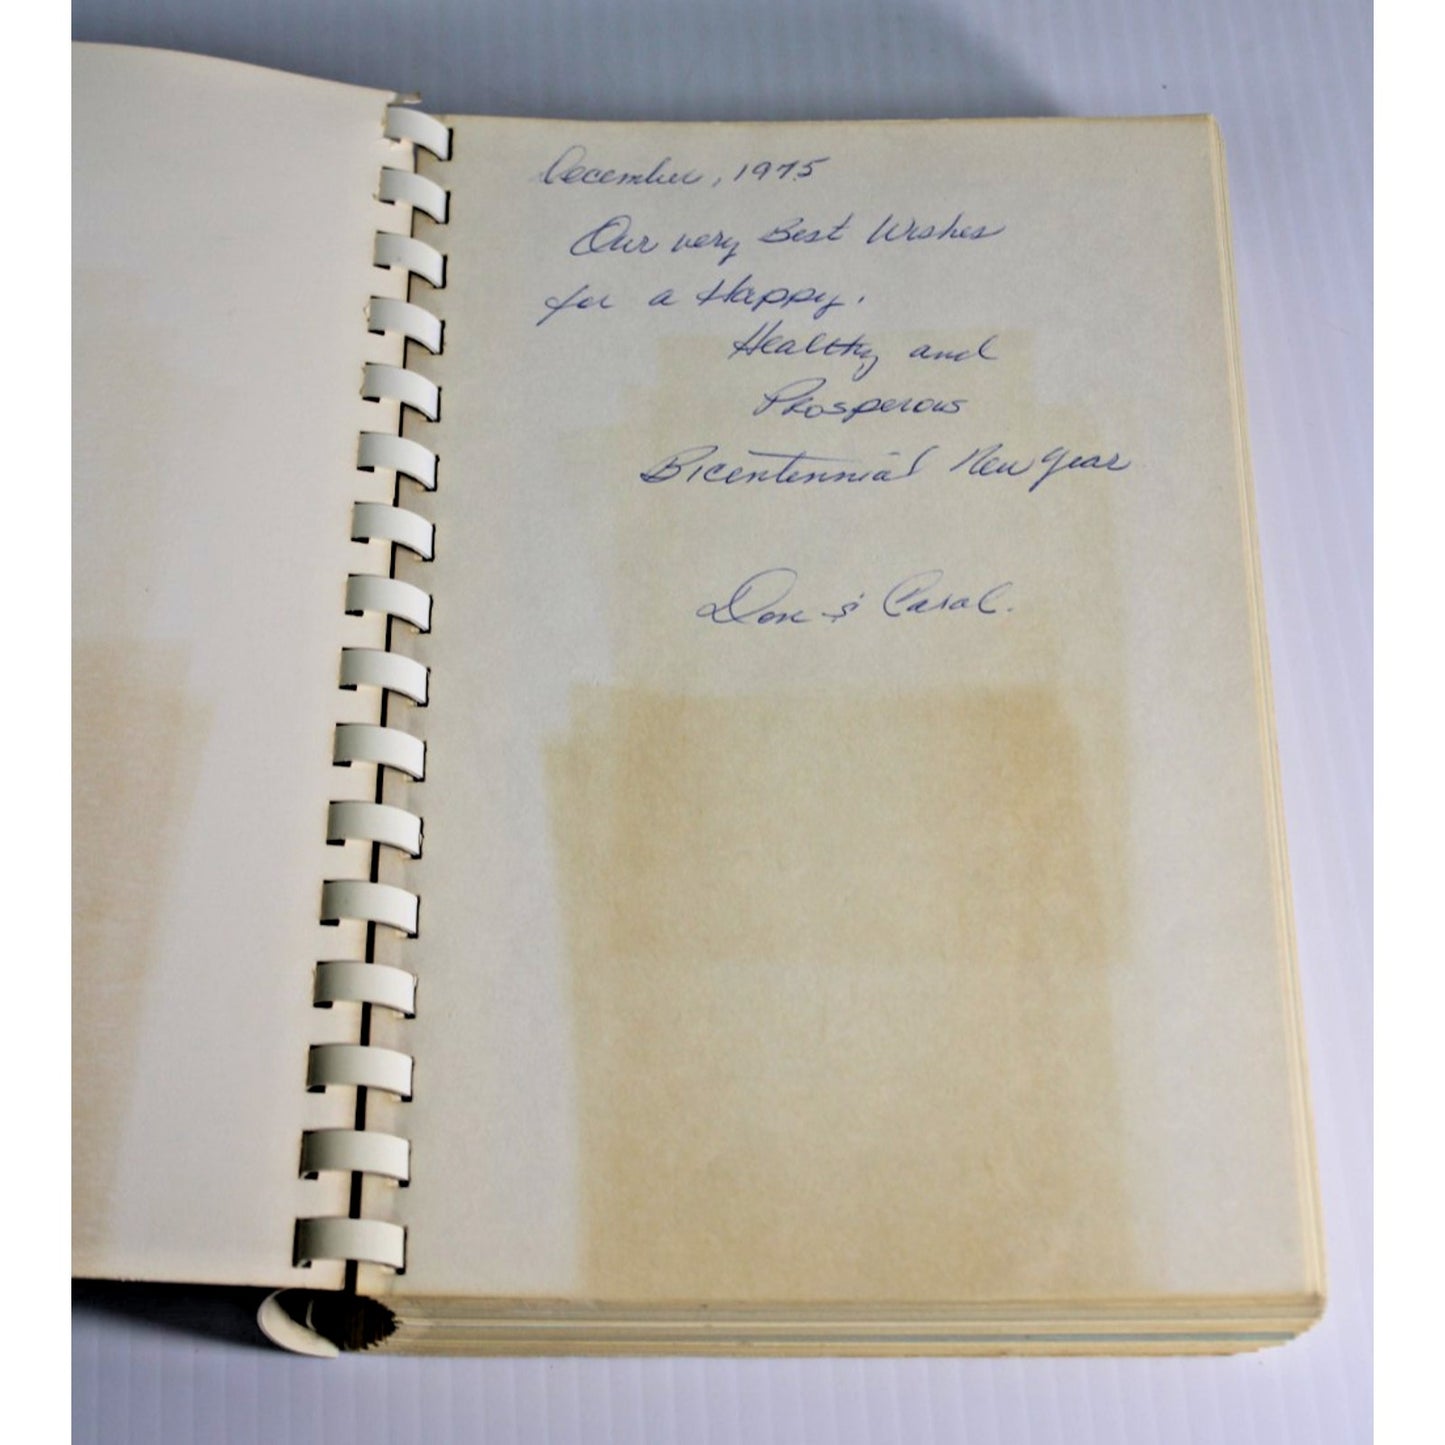 December, 1975
Our very Best Wishes
for a Happy,
Healthy and
Prosperous
Bicentennial New Year
Don & Carol.